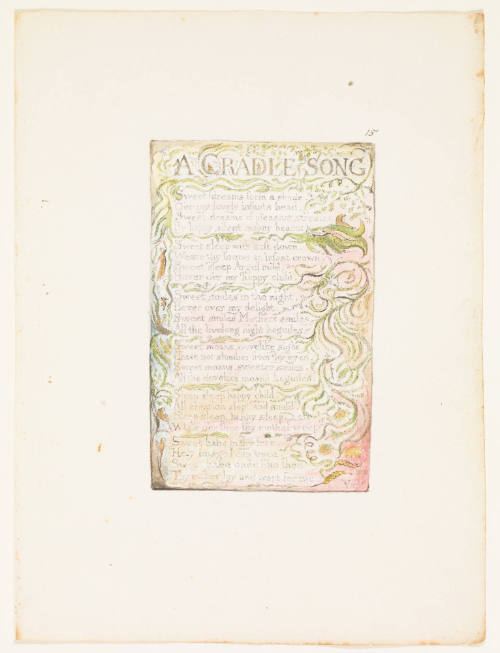 15
A CRADLE SONG
Sweet dreams form a shade
O'er my lovely infants head
Sweet dreams of pleasant streams
By happy silent moony beams
Sweet sleep with soft down
Weave thy brows an infant crown
Sweet sleep Angel mild
Hover o'er my happy child
Sweet smiles in the night
Hover over my delight
Sweet smiles Mothers smiles
All the livelong night beguiles
Sweet moans, dovelike sighs
Chase not slumber from thy eyes
Sweet moans, sweeter smiles
All the dovelike moans beguiles
Sleep sleep happy child
All creation slept and smil'd
Sleep sleep, happy sleep
While o'er thee thy mother weep
Sweet babe in thy face
Holy image I can trace
Sweet babe once like thee
Thy maker lay and wept for me